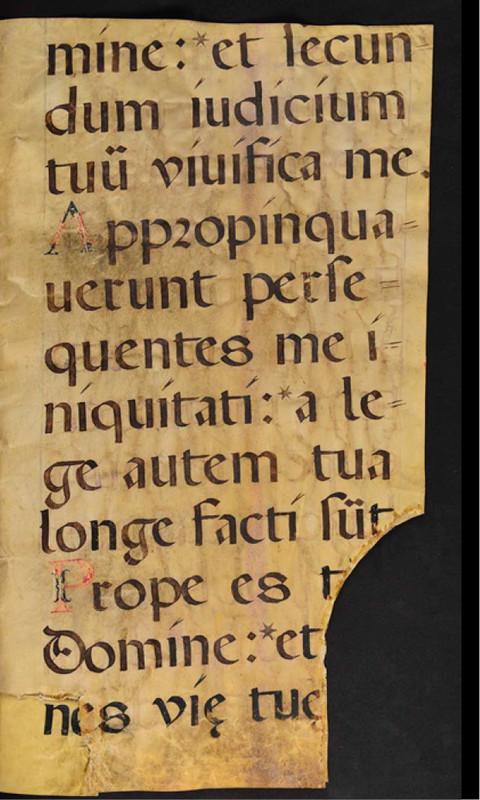 mine:*et secun=
dum iudicium
tuū viuifica me.
Appropinqua=
uerunt perse=
quentes me i=
niquitati:*a le=
ge autem tua
longe facti sūt
Prope es t
Domine:*et
nes vię tue